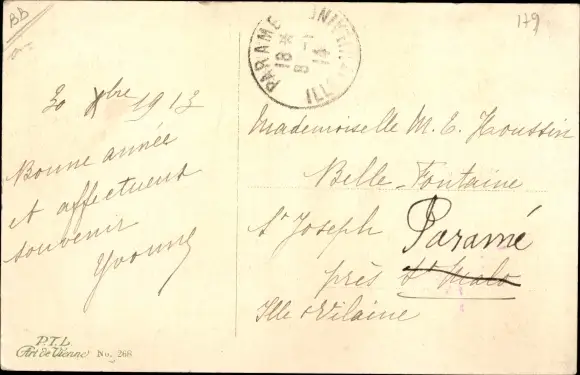 BB
179
PARAMÉ
18 *
8 - 1
14
ILLE
30 Xbre 1913
Bonne année
et affectueux
souvenir
Yvonne
Mademoiselle M. E. Houssin
Belle-Fontaine
St Joseph Paramé
près St Malo
Ille & Vilaine
P.T.L.
Art de Vienne No. 268